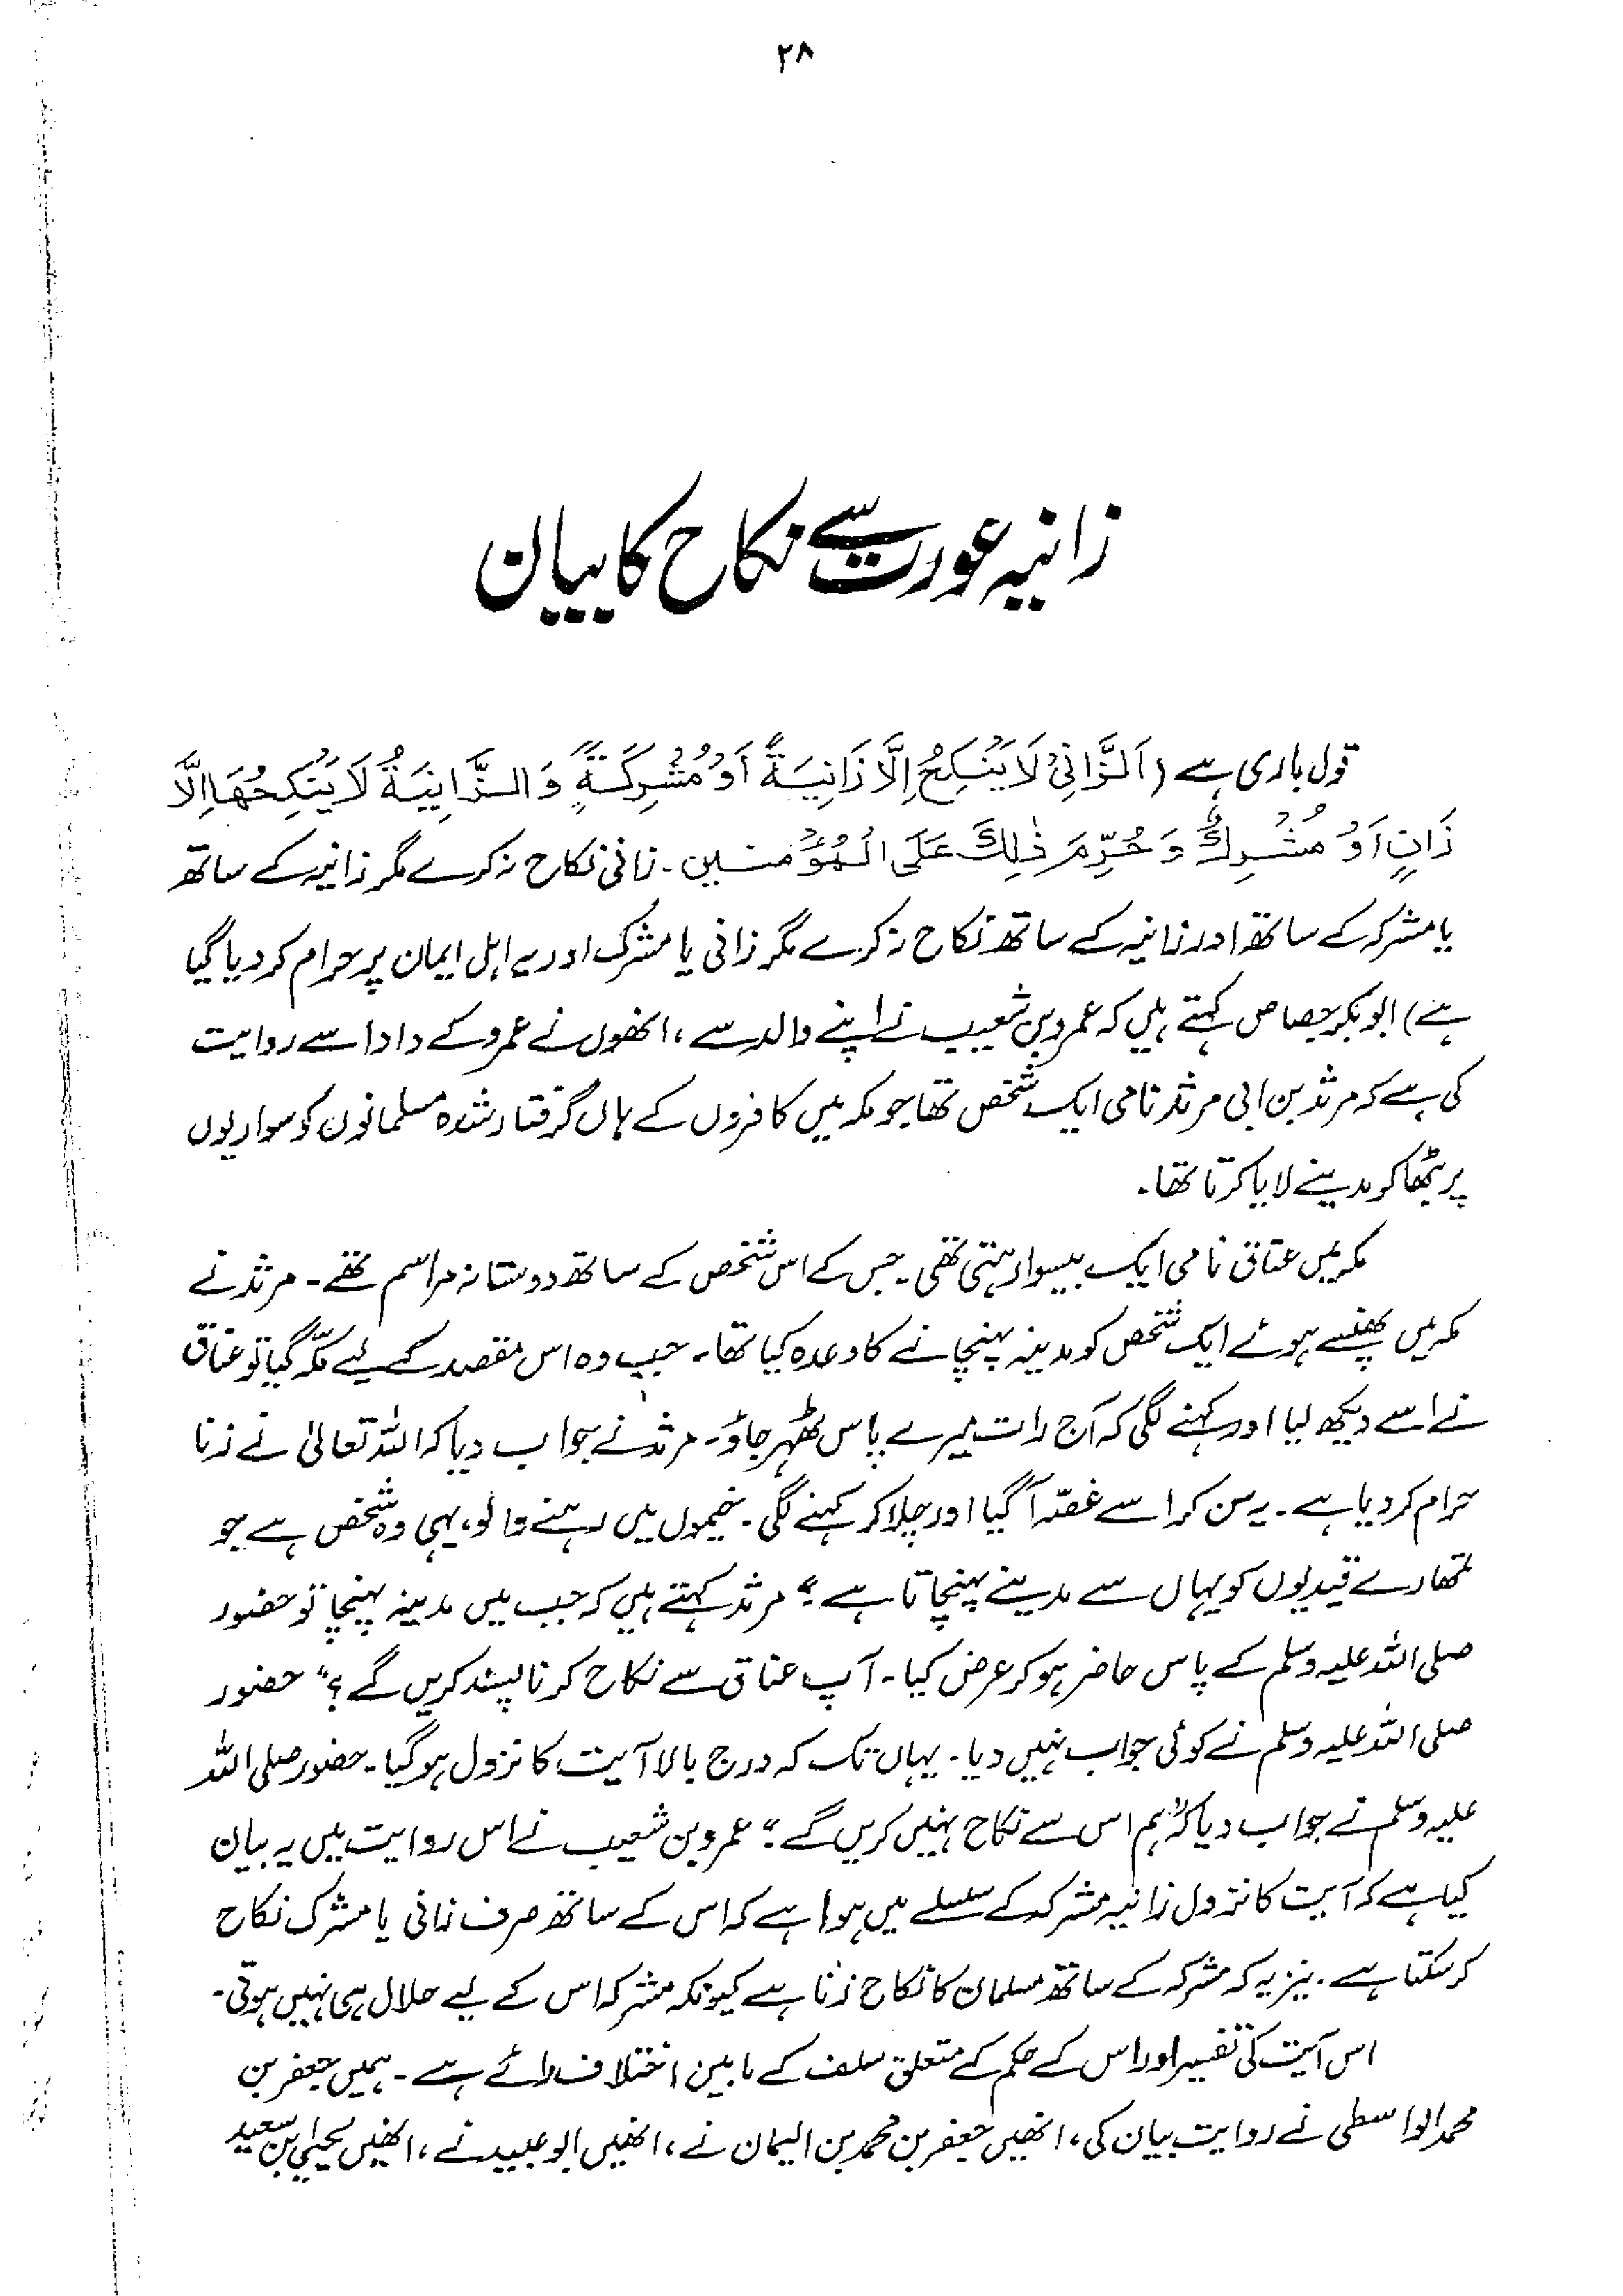 ۲۸
زانیہ عورت سے نکاح کا بیان
قول باری ہے (اَلزَّانِیْ لَا یَنْکِحُ اِلَّا زَانِیَۃً اَوْ مُشْرِکَۃً وَالزَّانِیَۃُ لَا یَنْکِحُھَا اِلَّا
زَانٍ اَوْ مُشْرِکٌ وَحُرِّمَ ذٰلِکَ عَلَی الْمُؤْمنین۔ زانی نکاح نہ کرے مگر زانیہ کے ساتھ
یا مشرکہ کے ساتھ اور زانیہ کے ساتھ نکاح نہ کرے مگر زانی یا مشرک اور یہ اہل ایمان پر حرام کر دیا گیا
ہے) ابو بکر جصاص کہتے ہیں کہ عمرو بن شعیب نے اپنے والد سے، انھوں نے عمرو کے دادا سے روایت
کی ہے کہ مرثد بن ابی مرثد نامی ایک شخص تھا جو مکہ میں کافروں کے ہاں گرفتار شدہ مسلمانوں کو سواریوں
پر بٹھا کر مدینے لایا کرتا تھا۔
مکہ میں عناق نامی ایک بیسوا رہتی تھی۔ جس کے اس شخص کے ساتھ دوستانہ مراسم تھے۔ مرثد نے
مکہ میں پھنسے ہوئے ایک شخص کو مدینہ پہنچانے کا وعدہ کیا تھا۔ جب وہ اس مقصد کے لیے مکّہ گیا تو عناق
نے اسے دیکھ لیا اور کہنے لگی کہ آج رات میرے پاس ٹھہر جاؤ۔ مرثد نے جواب دیا کہ اللہ تعالیٰ نے زنا
حرام کر دیا ہے۔ یہ سن کر اسے غصّہ آگیا اور چلا کر کہنے لگی۔ خیموں میں رہنے والو، یہی وہ شخص ہے جو
تمھارے قیدیوں کو یہاں سے مدینے پہنچاتا ہے" مرثد کہتے ہیں کہ جب میں مدینہ پہنچا تو حضور
صلی اللہ علیہ وسلم کے پاس حاضر ہو کر عرض کیا۔ آپ عناق سے نکاح کرنا پسند کریں گے؟" حضور
صلی اللہ علیہ وسلم نے کوئی جواب نہیں دیا۔ یہاں تک کہ درج بالا آیت کا نزول ہو گیا۔ حضور صلی اللہ
علیہ وسلم نے جواب دیا کہ "ہم اس سے نکاح نہیں کریں گے" عمرو بن شعیب نے اس روایت میں یہ بیان
کیا ہے کہ آیت کا نزول زانیہ مشرکہ کے سلسلے میں ہوا ہے کہ اس کے ساتھ صرف زانی یا مشرک نکاح
کر سکتا ہے۔ نیز یہ کہ مشرکہ کے ساتھ مسلمان کا نکاح زنا ہے کیونکہ مشرکہ اس کے لیے حلال ہی نہیں ہوتی۔
اس آیت کی تفسیر اور اس کے حکم کے متعلق سلف کے مابین اختلاف رائے ہے۔ ہمیں جعفر بن
محمد الواسطی نے روایت بیان کی، انھیں جعفر بن محمد بن الیمان نے، انھیں ابو عبید نے، انھیں یحییٰ بن سعید